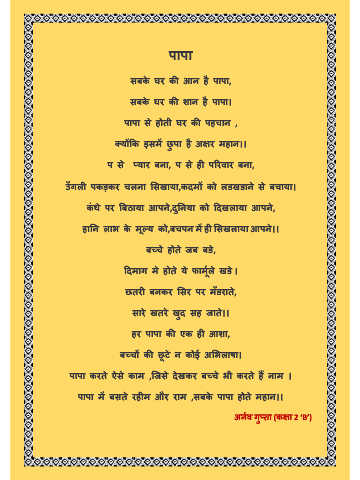 पापा
सबके घर की आन है पापा,
सबके घर की शान है पापा।
पापा से होती घर की पहचान ,
क्योंकि इसमें छुपा है अक्षर महान।।
प से प्यार बना, प से ही परिवार बना,
उँगली पकड़कर चलना सिखाया,कदमों को लडखडाने से बचाया।
कंधे पर बिठाया आपने,दुनिया को दिखलाया आपने,
हानि लाभ के मूल्य को,बचपन में ही सिखलाया आपने।।
बच्चे होते जब बडे,
दिमाग मे होते ये फार्मूले खडे ।
छतरी बनकर सिर पर मँडराते,
सारे खतरे खुद सह जाते।।
हर पापा की एक ही आशा,
बच्चों की छूटे न कोई अभिलाषा।
पापा करते ऐसे काम ,जिसे देखकर बच्चे भी करते हैं नाम ।
पापा में बसते रहीम और राम ,सबके पापा होते महान।।
अर्नव गुप्ता (कक्षा 2 'B')